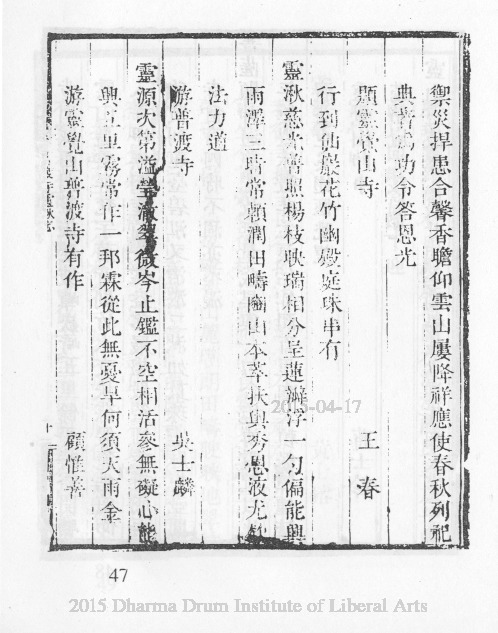 禦災捍患合馨香瞻仰雲山屢降祥應使春秋列祀
典著為功令答恩光
題靈鷲山寺　王春
行到仙巖花竹幽殿庭珠串有
靈湫慈光普照楊枝映瑞相分呈蓮瓣浮一勺偏能興
雨澤三時常賴潤田疇崙山本萃扶輿秀恩液尤
法力遒
游普渡寺　吳士麟
靈源次第溢瑩澈翠微岑止鑑不空相活參無礙心能
興五里霧常作一邦霖從此無憂旱何須天雨金
游靈覺山普渡寺有作　顧惟善
十
47
2015-04-17
2015 Dharma Drum Institute of Liberal Arts